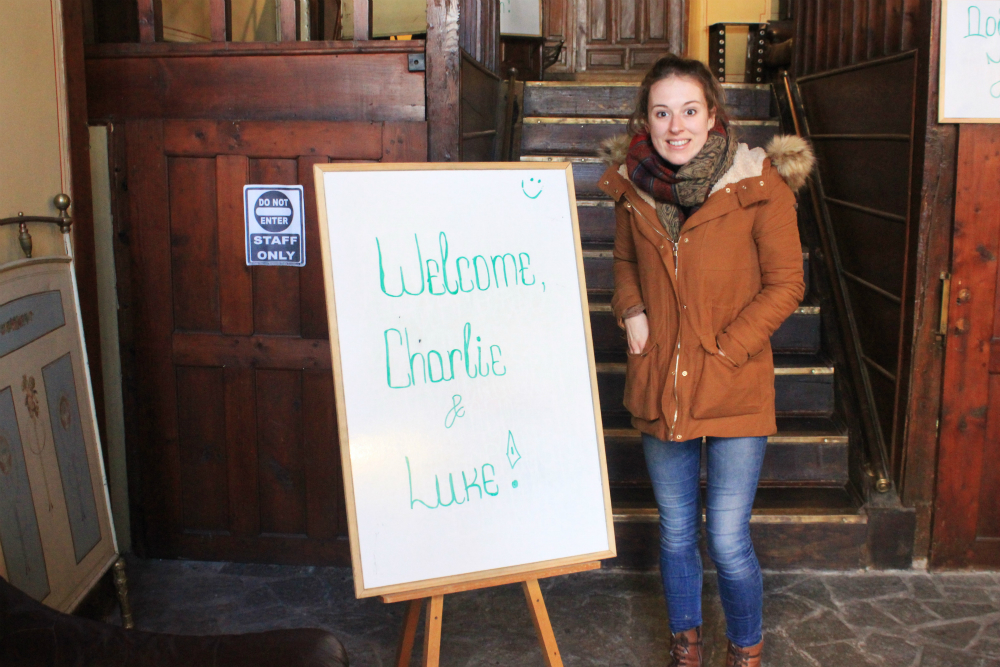 DO NOT
ENTER
STAFF
ONLY
Welcome,
Charlie
&
Luke!